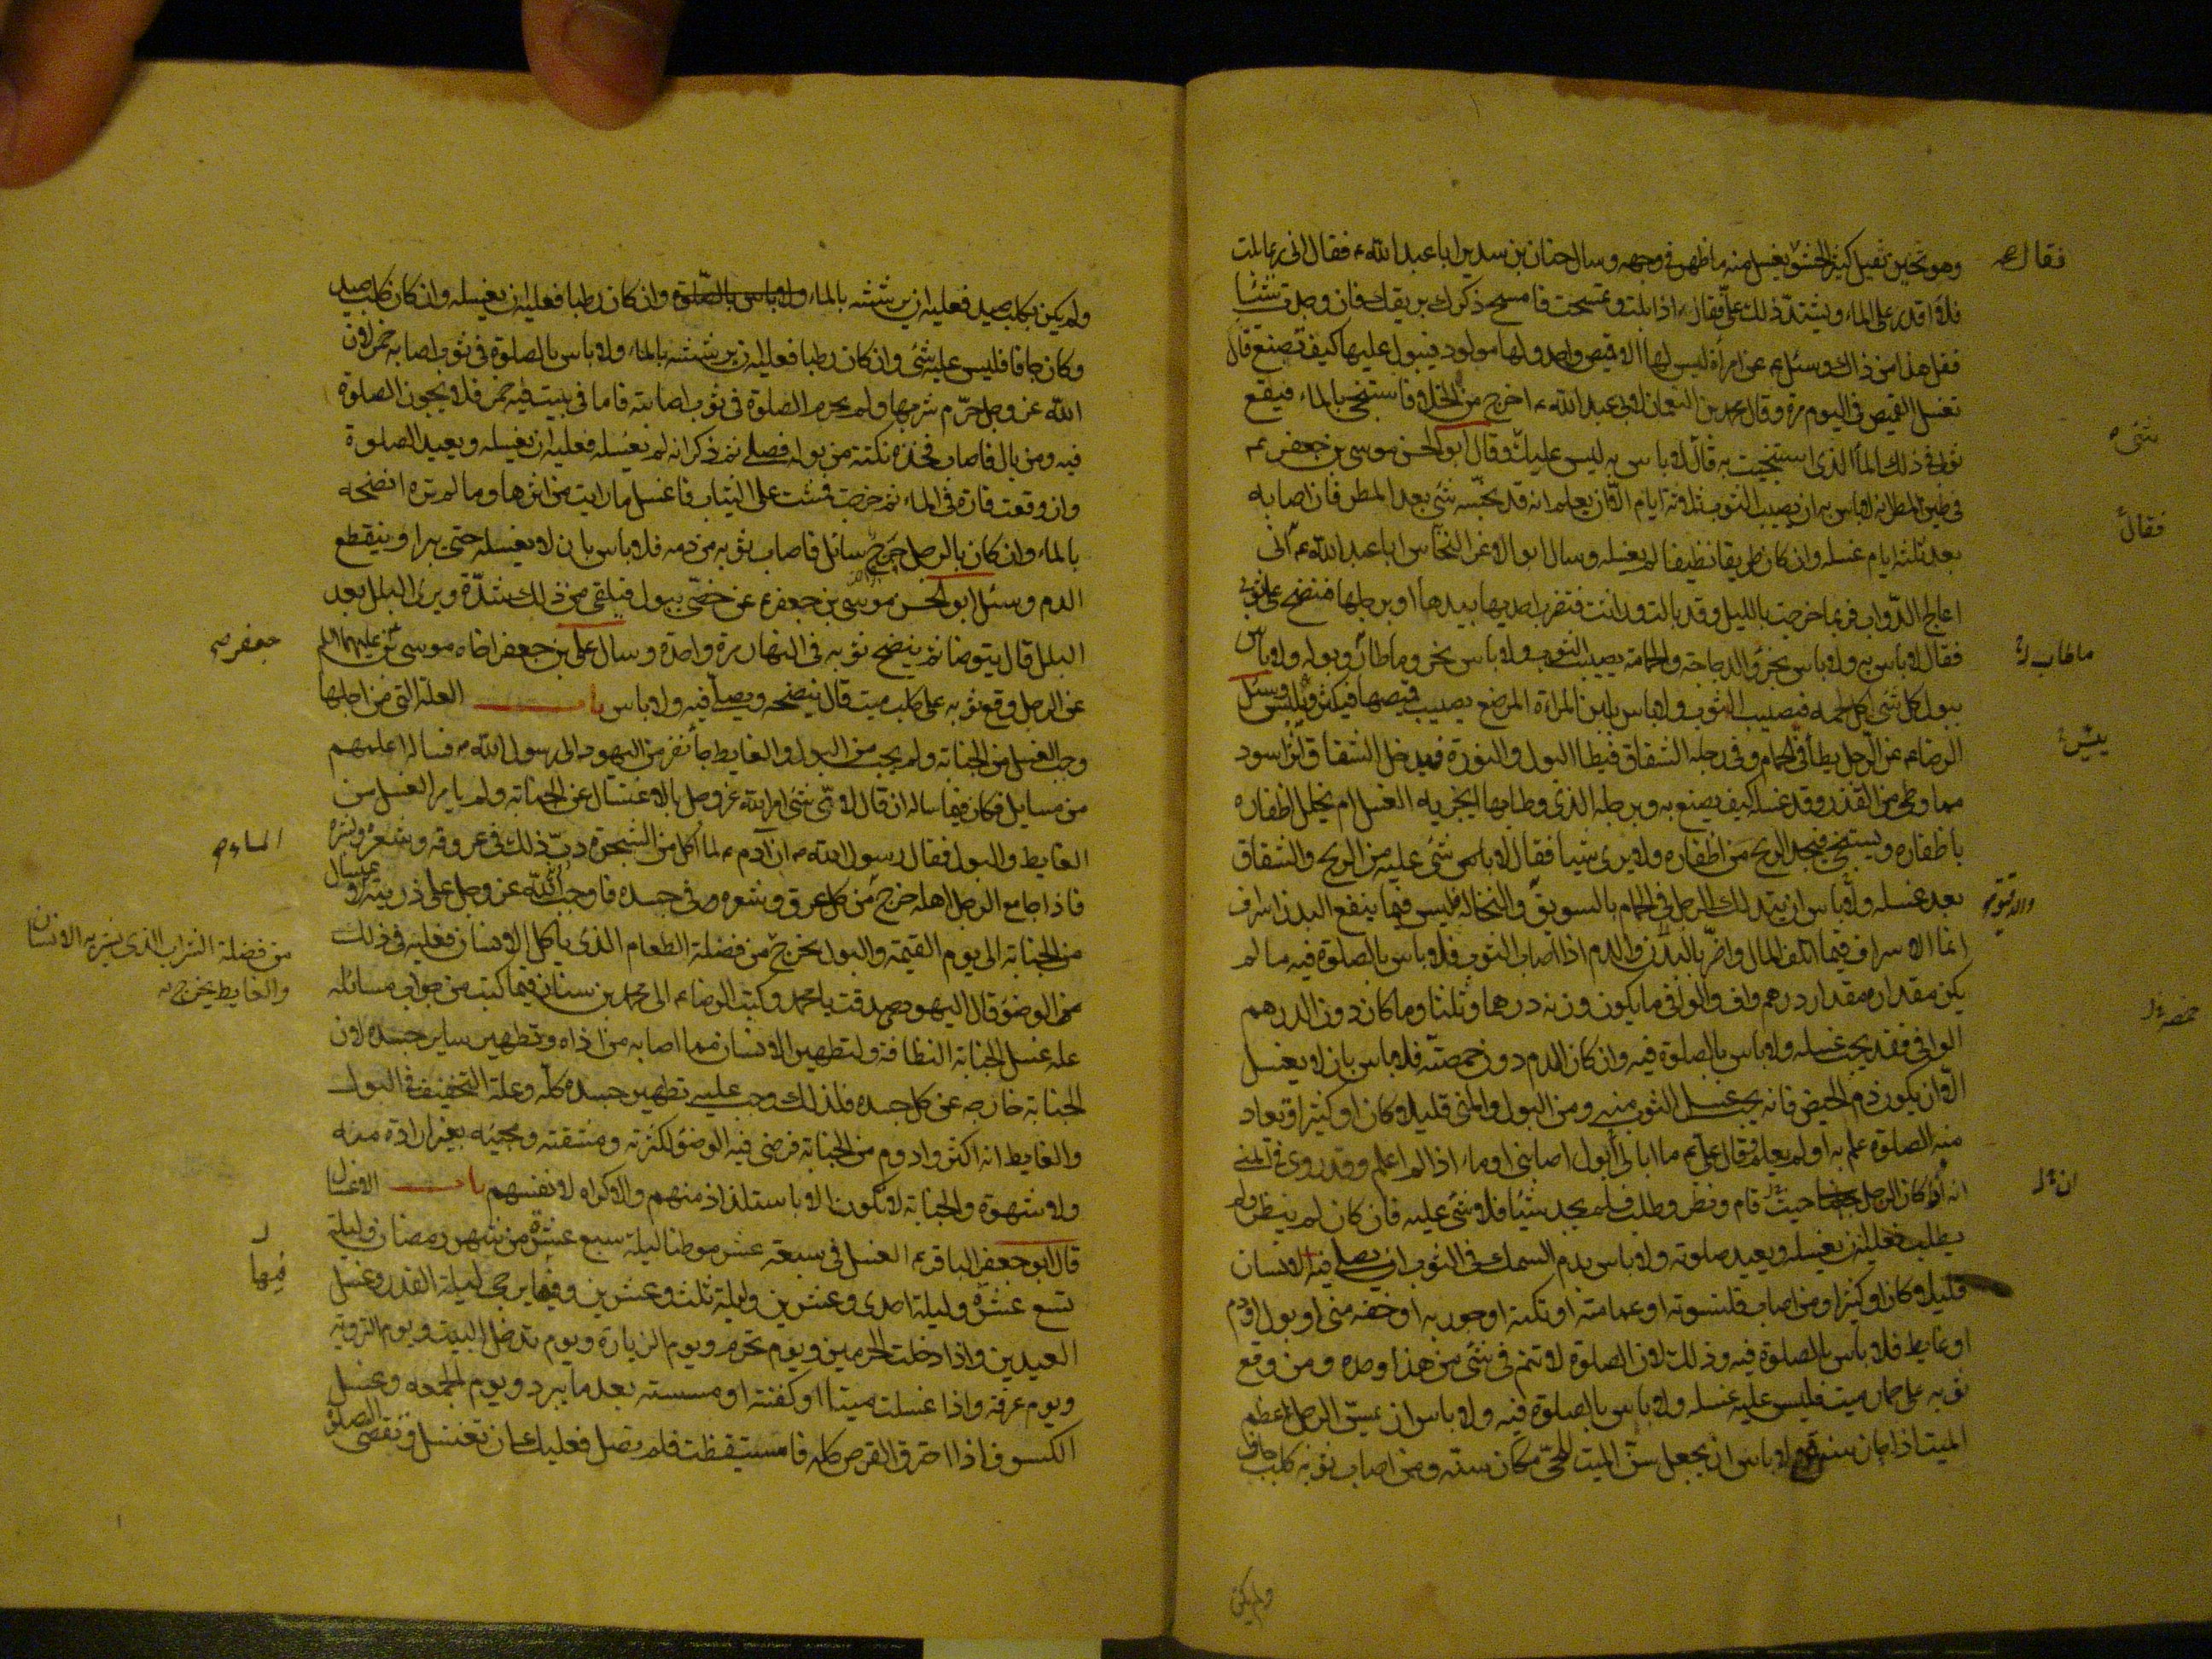 وهو ثخين ثقيل كثير الحشو يغسل منه ما ظهر في وجهه وسال حنان بن سدير ابا عبد الله ع فقال اني ربما بلت
فلا اقدر على الماء ويشتد ذلك علي فقال ع اذا بلت وتمسحت فامسح ذكرك بريقك فان وجدت شيئا
فقل هذا من ذاك وسئل ع عن امراة ليس لها الا قميص واحد ولها مولود فيبول عليها كيف تصنع قال
تغسل القميص في اليوم مرة وقال محمد بن النعمان لابي عبد الله ع اخرج من الخلا فاستنجي بالماء فيقع
ثوبي في ذلك الماء الذي استنجيت به قال لا باس به ليس عليك وقال ابو الحسن موسى بن جعفر ع
في طين المطر انه لا باس به ان يصيب الثوب ثلاثة ايام الا ان يعلم انه قد نجسه شئ بعد المطر فان اصابه
بعد ثلثة ايام غسله وان كان طريقا نظيفا لم يغسله وسال ابو الاغر النخاس ابا عبد الله ع اني
اعالج الدواب فربما خرجت بالليل وقد بالت وراثت فتضرب احديها بيدها او برجلها فينضح على ثوبي
فقال لا باس به ولا باس بخرؤ الدجاجة والحمامة يصيب الثوب ولا باس بخرء ما طار وبوله ولا باس
ببول كل شئ اكل لحمه فيصيب الثوب ولا باس بلبن المراة المرضع يصيب قميصها فيكثر وييبس وسئل
الرضا ع عن الرجل يطأ في الحمام وفي رجله الشقاق فيطا البول والنورة فيدخل الشقاق اثر اسود
مما وطئ من القذر وقد غسله كيف يصنع به وبرجله الذي وطا بها ايجزيه الغسل ام يخلل اظفاره
باظفاره ويستنجي فيجد الريح من اظفاره ولا يرى شيئا فقال لا باس شئ عليه من الريح والشقاق
بعد غسله ولا باس ان يتدلك الرجل في الحمام بالسويق والنخالة فليس فيما ينفع البدن اسراف
انما الاسراف فيما اتلف المال واضر بالبدن والدم اذا اصاب الثوب فلا باس بالصلوة فيه ما لم
يكن مقداره مقدار درهم واف والوافي ما يكون وزنه درهما وثلثا وما كان دون الدرهم
الوافي فقد يجب غسله ولا باس بالصلوة فيه وان كان الدم دون حمصة فلا باس بان لا يغسل
الا ان يكون دم الحيض فانه يجب غسل الثوب منه ومن البول والمني قليلا كان او كثيرا وتعاد
منه الصلوة علم به او لم يعلم وقال علي ع ما ابالي ابول اصابني او ماء اذا لم اعلم وقد روي في المني
انه اذا كان الرجل حيث قام ونظر وطلب فلم يجد شيئا فلا شئ عليه فان كان لم ينظر ولم
يطلب فعليه ان يغسله ويعيد صلوته ولا باس بدم السمك في الثوب ان يصلي فيه الانسان
قليلا كان او كثيرا ومن اصاب قلنسوته او عمامته او تكته او جوربه او خفه مني او بول او دم
او غايط فلا باس بالصلوة فيه وذلك لان الصلوة لا تتم في شئ من هذا وحده ومن وقع
ثوبه على حمار ميت فليس عليه غسله ولا باس بالصلوة فيه ولا باس ان يمس الرجل عظم
الميت اذا جاز سنة ولا باس ان يجعل سن الميت للحي مكان سنه ومن اصاب ثوبه كلب جاف
ولم يكن
فقال
شئ
فقال
ما طاب
ييبس
والدقيق
حمصة
ان
ولم يكن بكلب صيد فعليه ان يرشه بالماء وان كان رطبا فعليه ان يغسله وان كان كلب صيد
وكان جافا فليس عليه شئ وان كان رطبا فعليه ان يرشه بالماء ولا باس بالصلوة في ثوب اصابه خمر لان
الله عز وجل حرم شربها ولم يحرم الصلوة في ثوب اصابته فاما في بيت فيه خمر فلا يجوز الصلوة
فيه ومن بال فاصاب فخذه نكتة من بوله فصلى ثم ذكر انه لم يغسله فعليه ان يغسله ويعيد الصلوة
وان وقعت فارة في الماء ثم خرجت فمشت على الثياب فاغسل ما رايت من اثرها وما لم تره انضحه
بالماء وان كان بالرجل جرح سائل فاصاب ثوبه من دمه فلا باس بان لا يغسله حتى يبرا وينقطع
الدم وسئل ابو الحسن موسى بن جعفر ع عن خصي يبول فيلقى من ذلك شدة ويرى البلل بعد
البلل قال يتوضا ثم ينضح ثوبه في النهار مرة واحدة وسال علي بن جعفر اخاه موسى بن عليهما السلم
عن الرجل وقع ثوبه على كلب ميت قال ينضحه ويصلي فيه ولا باس باب العلة التي من اجلها
وجب الغسل من الجنابة ولم يجب من البول والغايط جاء نفر من اليهود الى رسول الله ص فساله اعلمهم
من مسايل فكان فيما ساله ان قال لاي شئ امر الله عز وجل بالاغتسال عن الجنابة ولم يامر الغسل من
الغايط والبول فقال رسول الله ص ان ادم ع لما اكل من الشجرة دب ذلك في عروقه وشعره وبشره
فاذا جامع الرجل اهله خرج من كل عرق وشعره وفي جسده فاوجب الله عز وجل على ذريته الاغتسال
من الجنابة الى يوم القيمة والبول يخرج من فضلة الطعام الذي ياكل الانسان فعليه في ذلك
من الوضوء قال اليهود صدقت يا محمد وكتب الرضا ع الى محمد بن سنان فيما كتب من جواب مسائله
علة غسل الجنابة النظافة ولتطهير الانسان مما اصابه من اذاه وتطهير ساير جسده لان
الجنابة خارجه عن كل جسده فلذلك وجب عليه تطهير جسده كله وعلة التخفيف في البول
والغايط انه اكثر وادوم من الجنابة فرضي فيه الوضوء لكثرته ومشقته ومجيئه بغير ارادة منه
ولا شهوة والجنابة لا تكون الا باستلذاذ منهم والاكراه لانفسهم باب الاغسال
قال ابو جعفر الباقر ع الغسل في سبعة عشر موطنا ليلة سبع عشرة من شهر رمضان وليلة
تسع عشرة وليلة احدى وعشرين وليلة ثلث وعشرين وفيها يرجى ليلة القدر وغسل
العيدين واذا دخلت الحرمين ويوم تحرم ويوم الزيارة ويوم تدخل البيت ويوم التروية
ويوم عرفة واذا غسلت ميتا او كفنته او مسسته بعد ما يبرد ويوم الجمعه وغسل
الكسوف اذا احترق القرص كله فاستيقظت فلم تصل فعليك ان تغتسل وتقضي الصلوة
جعفر
الماء
من فضلة الشراب الذي يشربه الانسان
والغايط يخرج
فيها